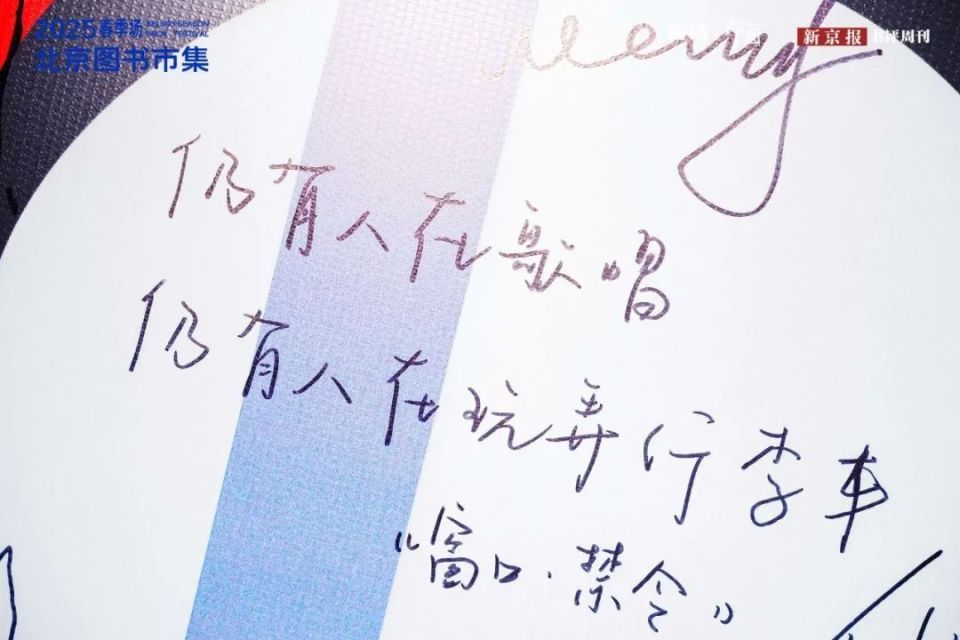 2025 春季场 BEIJING SEASON
BOOK FESTIVAL
北京图书市集
新京报 书评周刊
仍有人在歌唱
仍有人在玩弄行李车
“窗口·禁令”